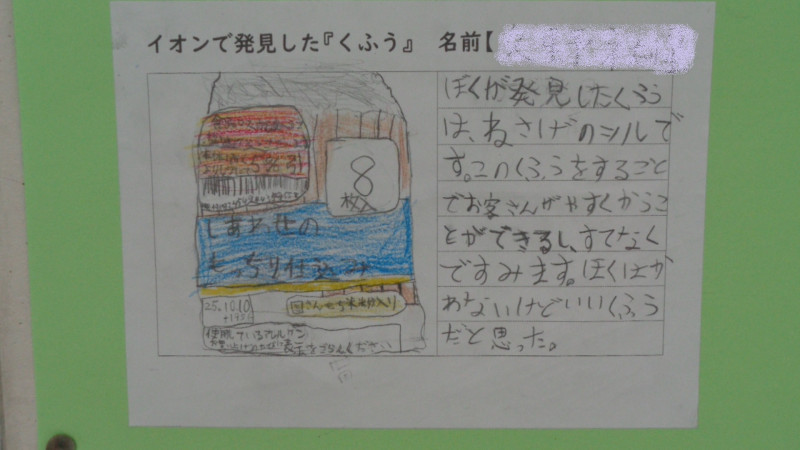 イオンで発見した『くふう』 名前【
8
枚入
しあわせの
もっちり仕込み
25.10.10
米粉入り
ください
ぼくが発見したくふう
は、ねさげのシルで
す。このくふうをするごと
でお客さんがやすくかうこ
とができるし、すてなく
てすみます。ぼくはか
わないけどいいくふう
だと思った。